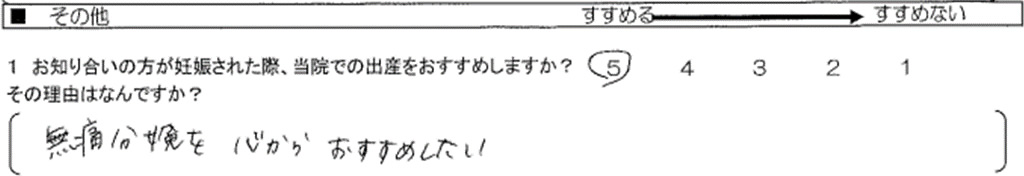 ■ その他 すすめる すすめない
1 お知り合いの方が妊娠された際、当院での出産をおすすめしますか? 5 4 3 2 1
その理由はなんですか?
無痛分娩を 心から おすすめしたい